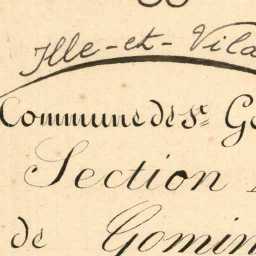 Ille-et-Vila
Commune de St Ge
Section
de Gomin